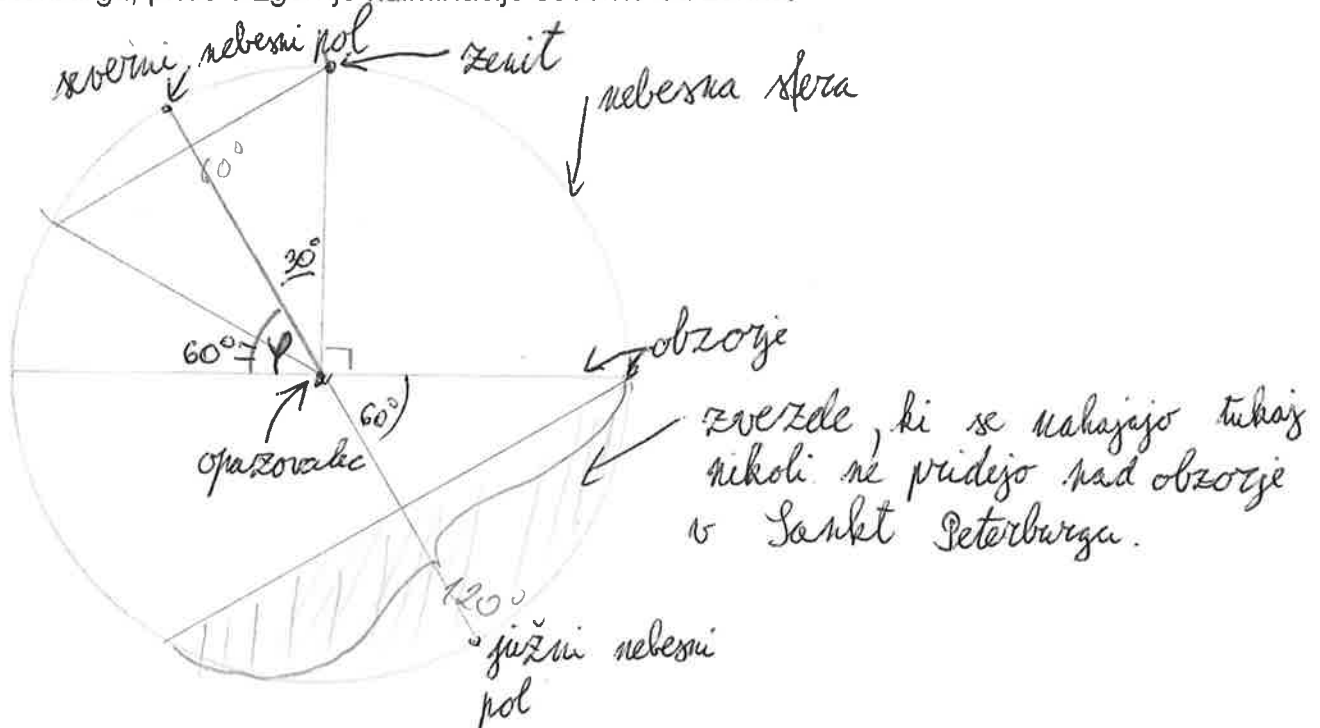 severni nebesni pol
zenit
nebesna sfera
60°
30°
60° = φ
obzorje
60°
opazovalec
zvezde, ki se nahajajo tukaj
nikoli ne pridejo nad obzorje
v Sankt Peterburgu.
120°
južni nebesni
pol